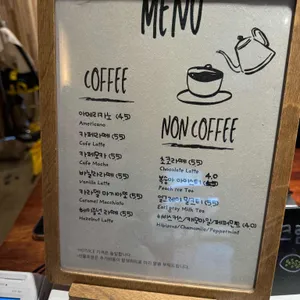 MENU
COFFEE
아메리카노 (4.5)
Americano
카페라떼 (5.5)
Cafe Latte
카페모카 (5.5)
Cafe Mocha
바닐라라떼 (5.5)
Vanilla Latte
카라멜 마끼아또 (5.5)
Caramel Macchiato
헤이즐넛 라떼 (5.5)
Hazelnut Latte
NON COFFEE
초코라떼 (5.5)
Chocolate Latte
복숭아 아이스티 4.0
Peach Ice Tea
얼그레이 밀크티 (5.5)
Earl grey Milk Tea
히비스커스/캐모마일/페퍼민트 (4.0)
Hibiscus/Chamomile/Peppermint